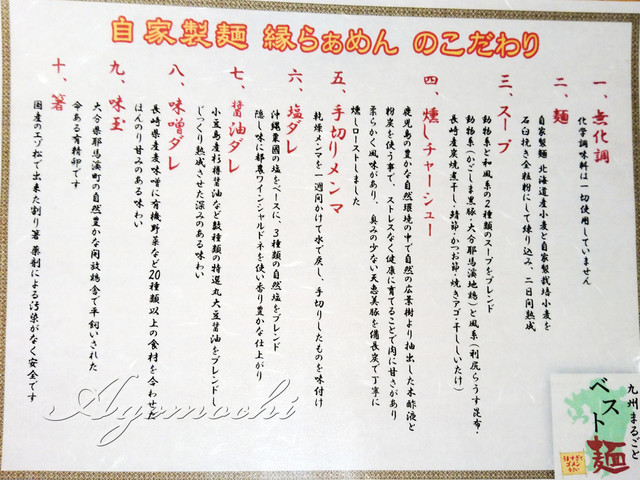 自家製麺 縁らぁめん のこだわり
一、無化調
化学調味料は一切使用していません
二、麺
自家製麺 北海道産小麦と自家製栽培小麦を
石臼挽き全粒粉にして練り込み、二日間熟成
三、スープ
動物系と和風系の2種類のスープをブレンド
動物系(かごしま黒豚・大分耶馬溪地鶏)と風系(利尻らうす昆布・
長崎産炭焼煮干し・鯖節・かつお節・焼きアゴ・干ししいたけ)
四、燻しチャーシュー
鹿児島の豊かな自然環境の中で自然の広葉樹より抽出した木酢液と
粉炭を使う事で、ストレスなく健康に育てることで肉に甘さがあり
柔らかく風味があり、臭みの少ない天恵美豚を備長炭で丁寧に
燻しローストしました
五、手切りメンマ
乾燥メンマを一週間かけて水で戻し、手切りしたものを味付け
六、塩ダレ
沖縄粟國の塩をベースに、3種類の自然塩をブレンド
隠し味に都農ワインシャルドネを使い香り豊かな仕上がり
七、醤油ダレ
小豆島産杉樽醤油など数種類の特選丸大豆醤油をブレンドし
じっくり熟成させた深みのある味わい
八、味噌ダレ
長崎県産麦味噌に有機野菜など20種類以上の食材を合わせた
ほんのり甘みのある味わい
九、味玉
大分県耶馬溪町の自然豊かな開放鶏舎で平飼いされた
命ある有精卵です
十、箸
国産のエゾ松で出来た割り箸 薬剤による汚染がなく安全です
九州まるごと
ベスト麺
うますぎて
ゴメン
Agomochi